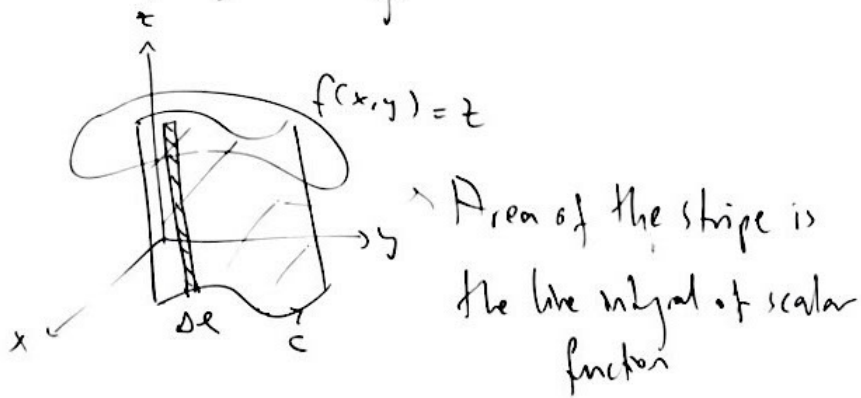 z
f(x,y) = z
y
x
Δl
C
Area of the stripe is
the line integral of scalar
function